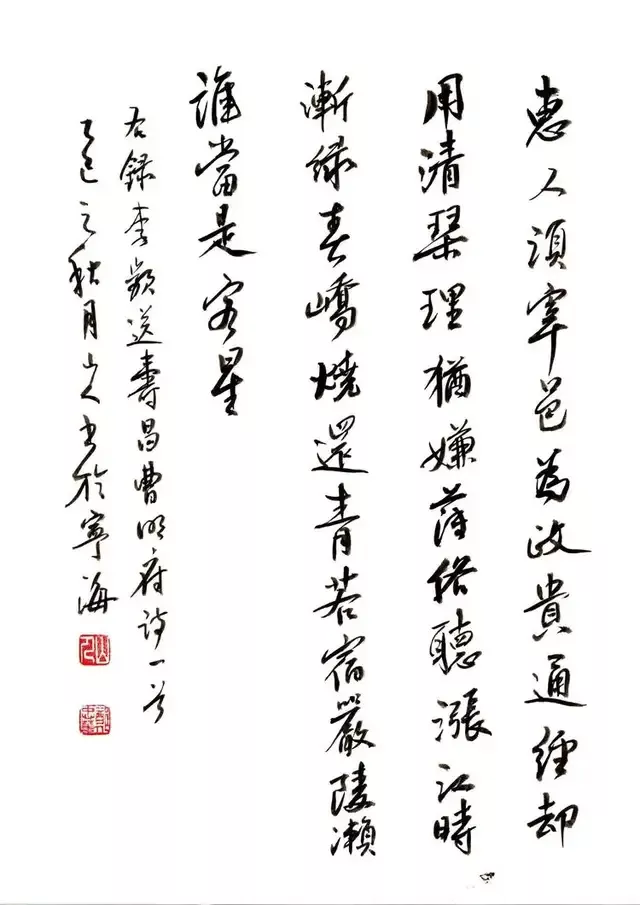 惠人須宰邑為政貴通經却
用清琴理猶嫌薄俗聽漲江時
漸綠春嶠燒還青若宿嚴陵瀨
誰當是客星
右錄李頻送壽昌曹明府詩一首
乙巳之秋月山人書於寧海